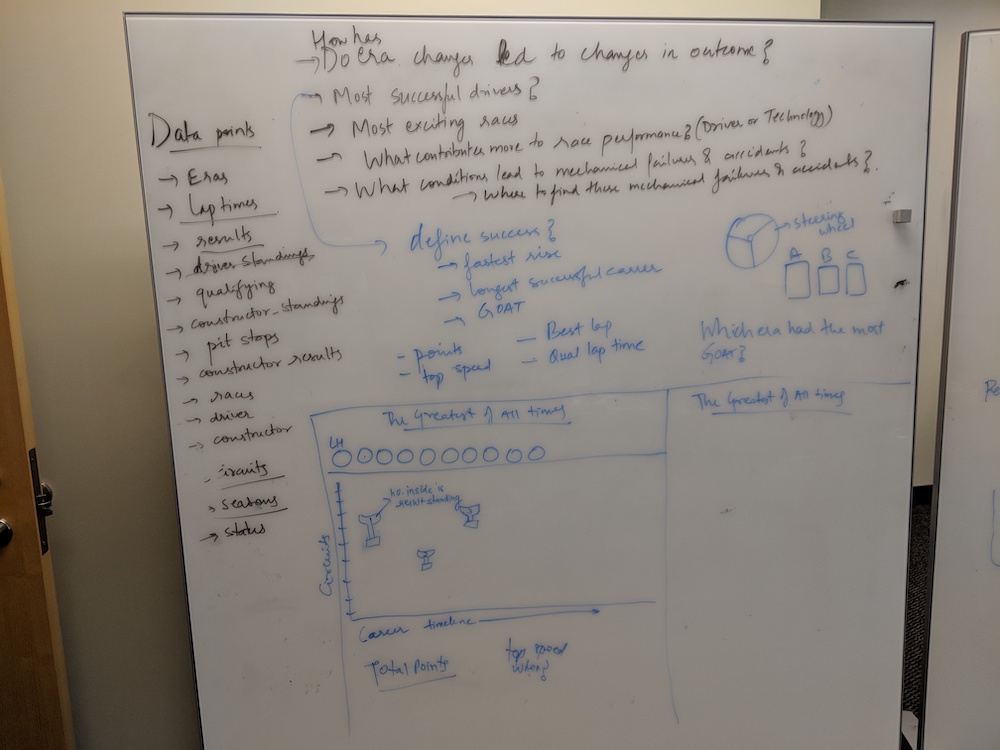 How has
→ Do era changes led to changes in outcome?
→ Most successful drivers?
→ Most exciting races
→ What contributes more to race performance? (Driver or Technology)
→ What conditions lead to mechanical failures & accidents?
→ Where to find these mechanical failures & accidents?
Data points
→ Eras
→ Lap times
→ results
→ driver standings
→ qualifying
→ constructor_standings
→ pit stops
→ constructor results
→ races
→ driver
→ constructor
circuits
→ seasons
→ status
define success?
→ fastest rise
→ longest successful career
→ GOAT
- points
- top speed
- Best lap
- Qual lap time
→ steering
wheel
A B C
Which era had the most
GOAT?
The Greatest of All times
LH
no. inside is
result standing
Circuits
Career timeline
Total Points
top
when?
The Greatest of All times